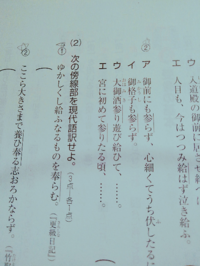 入道殿の御前に
ウ 人目も、今はつつみ給はず泣き給ふ。
② ア 御前にも参らず、心細くてうち伏したる。
イ 御格子も参らず
ウ 大御酒参り遊び給ひて、……。
エ 宮に初めて参りたる頃、……。
(2) 次の傍線部を現代語訳せよ。
① ゆかしくし給ふなるものを奉らむ。
(『更級日記』)
② ここら大きさまで養ひ奉る志おろかならず。
(『竹